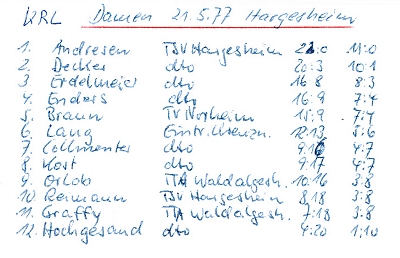 KRL Damen 21.5.77 Hargesheim
1. Andresen TSV Hargesheim 22:0 11:0
2. Decker dto 20:3 10:1
3. Erdelmeier dto 16:8 8:3
4. Enders dto 16:9 7:4
5. Braun TV Norheim 15:9 7:4
6. Lang Eintr. Kreuzn. 12:13 5:6
7. Collmenter dto 9:16 4:7
8. Kost dto 9:17 4:7
9. Orlob TTA Waldalgesh. 10:16 3:8
10. Reimann TSV Hargesheim 8:18 3:8
11. Graffy TTA Waldalgesh. 7:18 3:8
12. Hochgesand dto 4:20 1:10